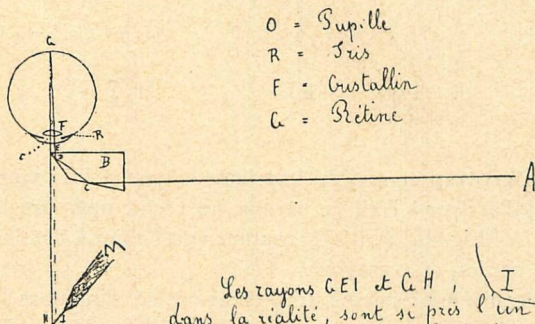 G
O = Pupille
R = Iris
F = Cristallin
G = Rétine
F
R
c
B
C
A
M
H
I
I
Les rayons GEI et G H,
dans la réalité, sont si près l'un